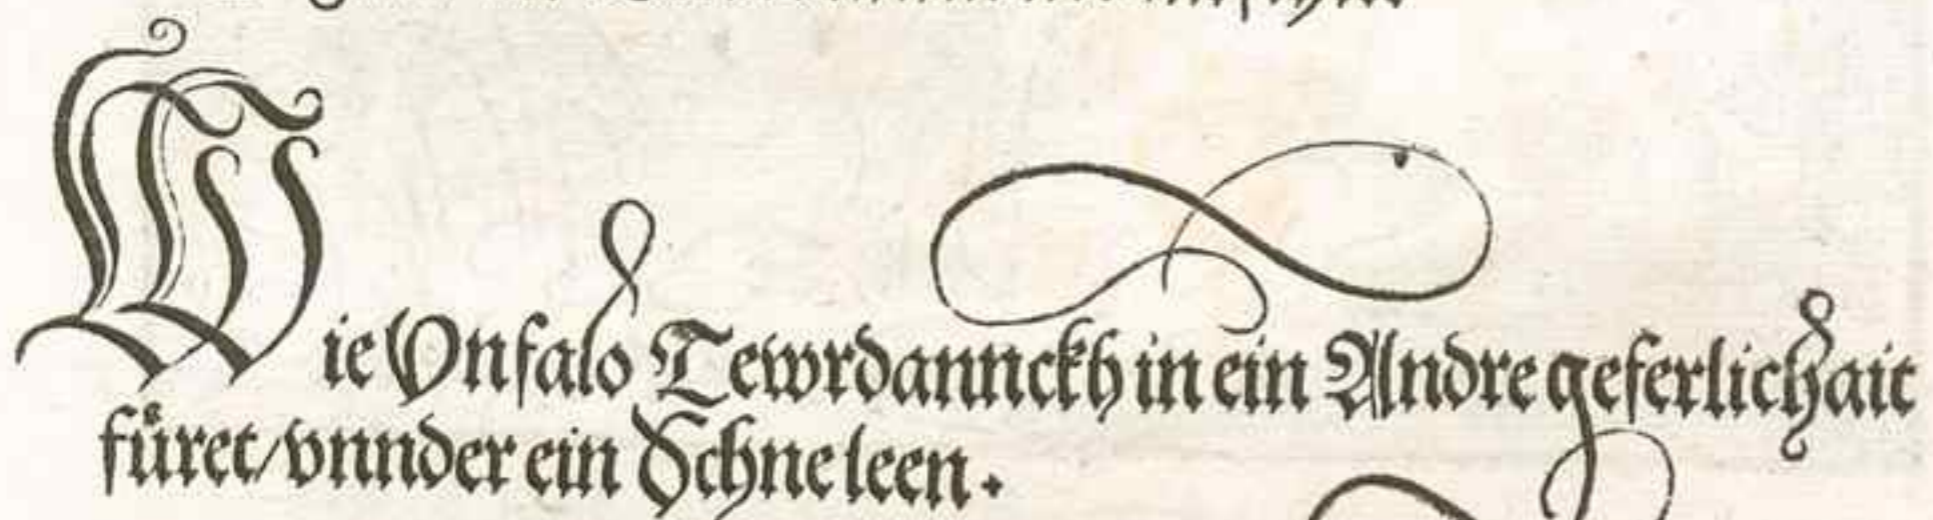 Wie Vnfalo Tewrdannckh in ein Andre geferlichait
fůret/vnnder ein Schne leen.